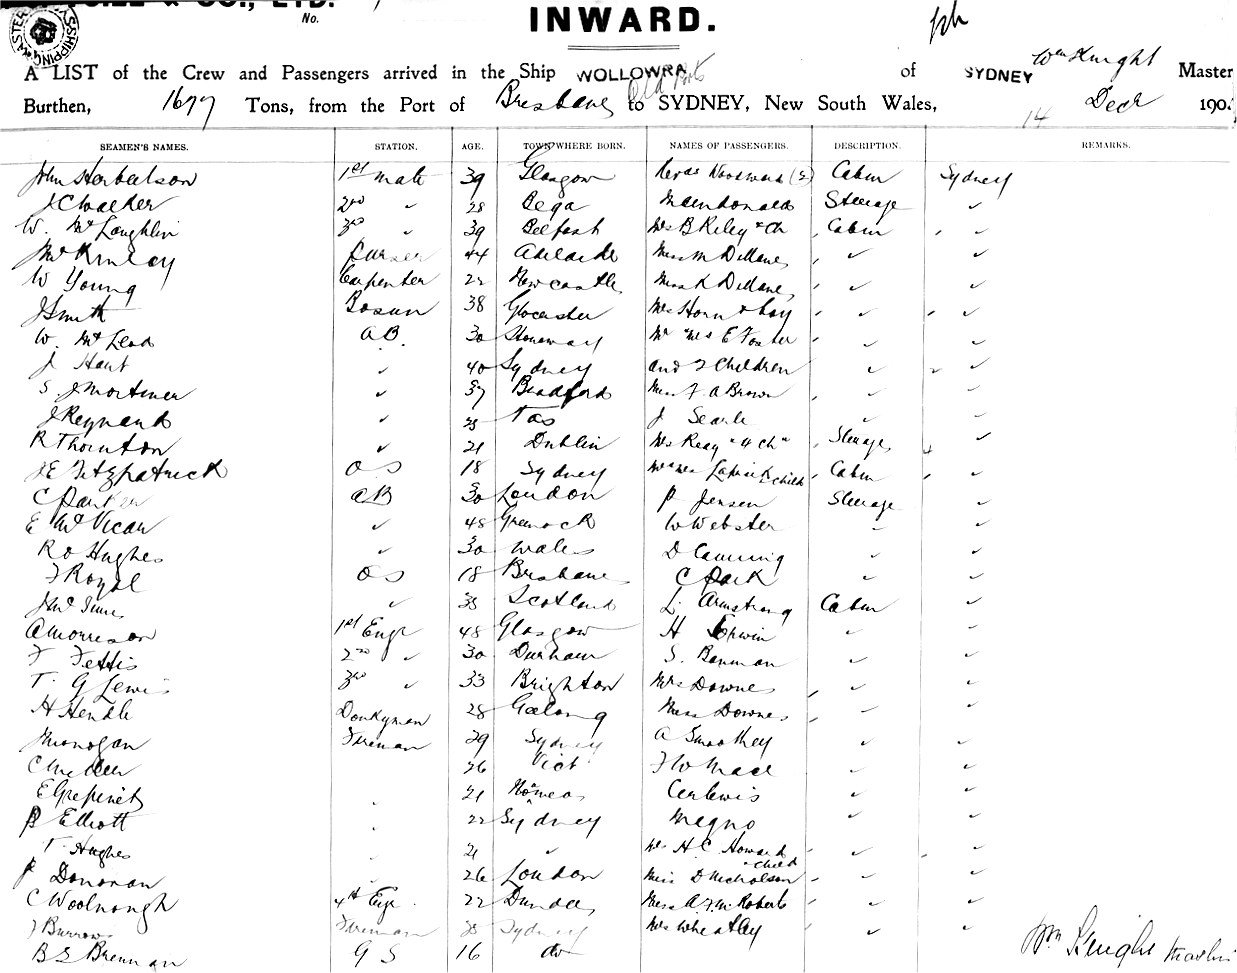 & CO., LTD.
No.
INWARD.
A LIST of the Crew and Passengers arrived in the Ship WOLLOWRA of SYDNEY Wm Knight Master
Burthen, 1677 Tons, from the Port of Brisbane to SYDNEY, New South Wales, 14 Decr 190
SEAMEN'S NAMES. STATION. AGE. TOWN WHERE BORN. NAMES OF PASSENGERS. DESCRIPTION. REMARKS.
John Herbertson 1st Mate 39 Glasgow Cabin Sydney
J C Walker 2nd " 28 Bega Steerage "
W. McLoughlin 3rd " 39 Belfast Mrs B Riley & Ch Cabin "
McKinley Purser 44 Adelaide Miss M Dillane " "
W Young Carpenter 22 Newcastle Miss K Dillane " "
J Smith Bosun 38 Glocester Mrs Horn & boy " "
W. McLeod AB. 30 Stornoway Mr & Mrs E Foster " "
J Hart " 40 Sydney and 2 Children " "
S J Mortimer " 37 Bradford Miss F. A Brown " "
J Reynard " Tas J Searle " "
R Thornton " 21 Dublin Mrs Reay "4 Ch" Steerage "
J E Fitzpatrick OS 18 Sydney child Cabin "
C Parker AB 30 London P Jensen Steerage "
E McVicar " 48 Greenock W Webster " "
R O Hughes " 30 Wales D Canning "
F Royal OS 18 Brisbane C Park " "
" Scotland L. Armstrong Cabin "
A Morrison 1st Engr 48 Glasgow H " "
F Fettis 2nd " 30 Durham S. Banman " "
T. G Lewis 3rd " 33 Brighton Mrs Downes " "
H Hendle Donkyman 28 Geelong Miss Downes " "
J Monogan Fireman 29 Sydney A Smoothey " "
26 Vict F W Mace " "
21 Cerlewis " "
P Elliott 22 Sydney Magno " "
T. Hughes 21 " Mr H C Howard & child " "
P Donovan 26 London Miss D Nicholson " "
C Woolnough 4th Engr. 22 Dundee Miss A. F. M. Roberts " "
J Burrows Fireman Sydney Mrs Wheatley " "
B S Brennan G S 16 do
Wm Knight Master